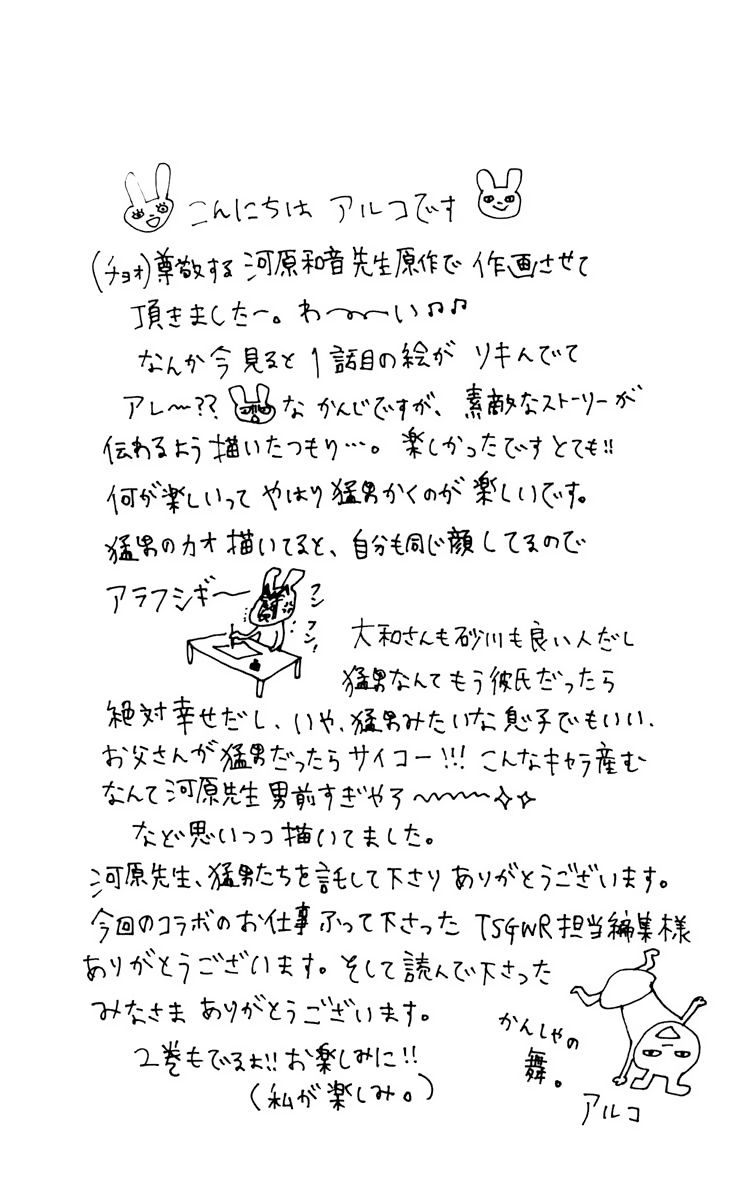 こんにちは アルコです
(チョオ)尊敬する 河原和音先生原作で 作画させて
頂きました〜。わ〜〜い♫♫
なんか今見ると 1話目の絵が リキんでて
アレ〜?? な かんじですが、素敵なストーリーが
伝わるよう 描いたつもり…。楽しかったです とても!!
何が楽しいって やはり猛男かくのが 楽しいです。
猛男のカオ 描いてると、自分も同じ顔してるので
アラフシギ〜
フン
フン!
大和さんも砂川も良い人だし
猛男なんてもう彼氏だったら
絶対幸せだし、いや、猛男みたいな息子でもいい、
お父さんが猛男だったらサイコー!!! こんなキャラ産む
なんて河原先生 男前すぎやろ〜〜〜✧✧
など思いつつ描いてました。
河原先生、猛男たちを託して下さり ありがとうございます。
今回のコラボのお仕事ふって下さった TSGWR担当編集様
ありがとうございます。そして読んで下さった
みなさま ありがとうございます。
2巻もでるよ!! お楽しみに!!
(私が楽しみ。)
かんしゃの
舞。
アルコ